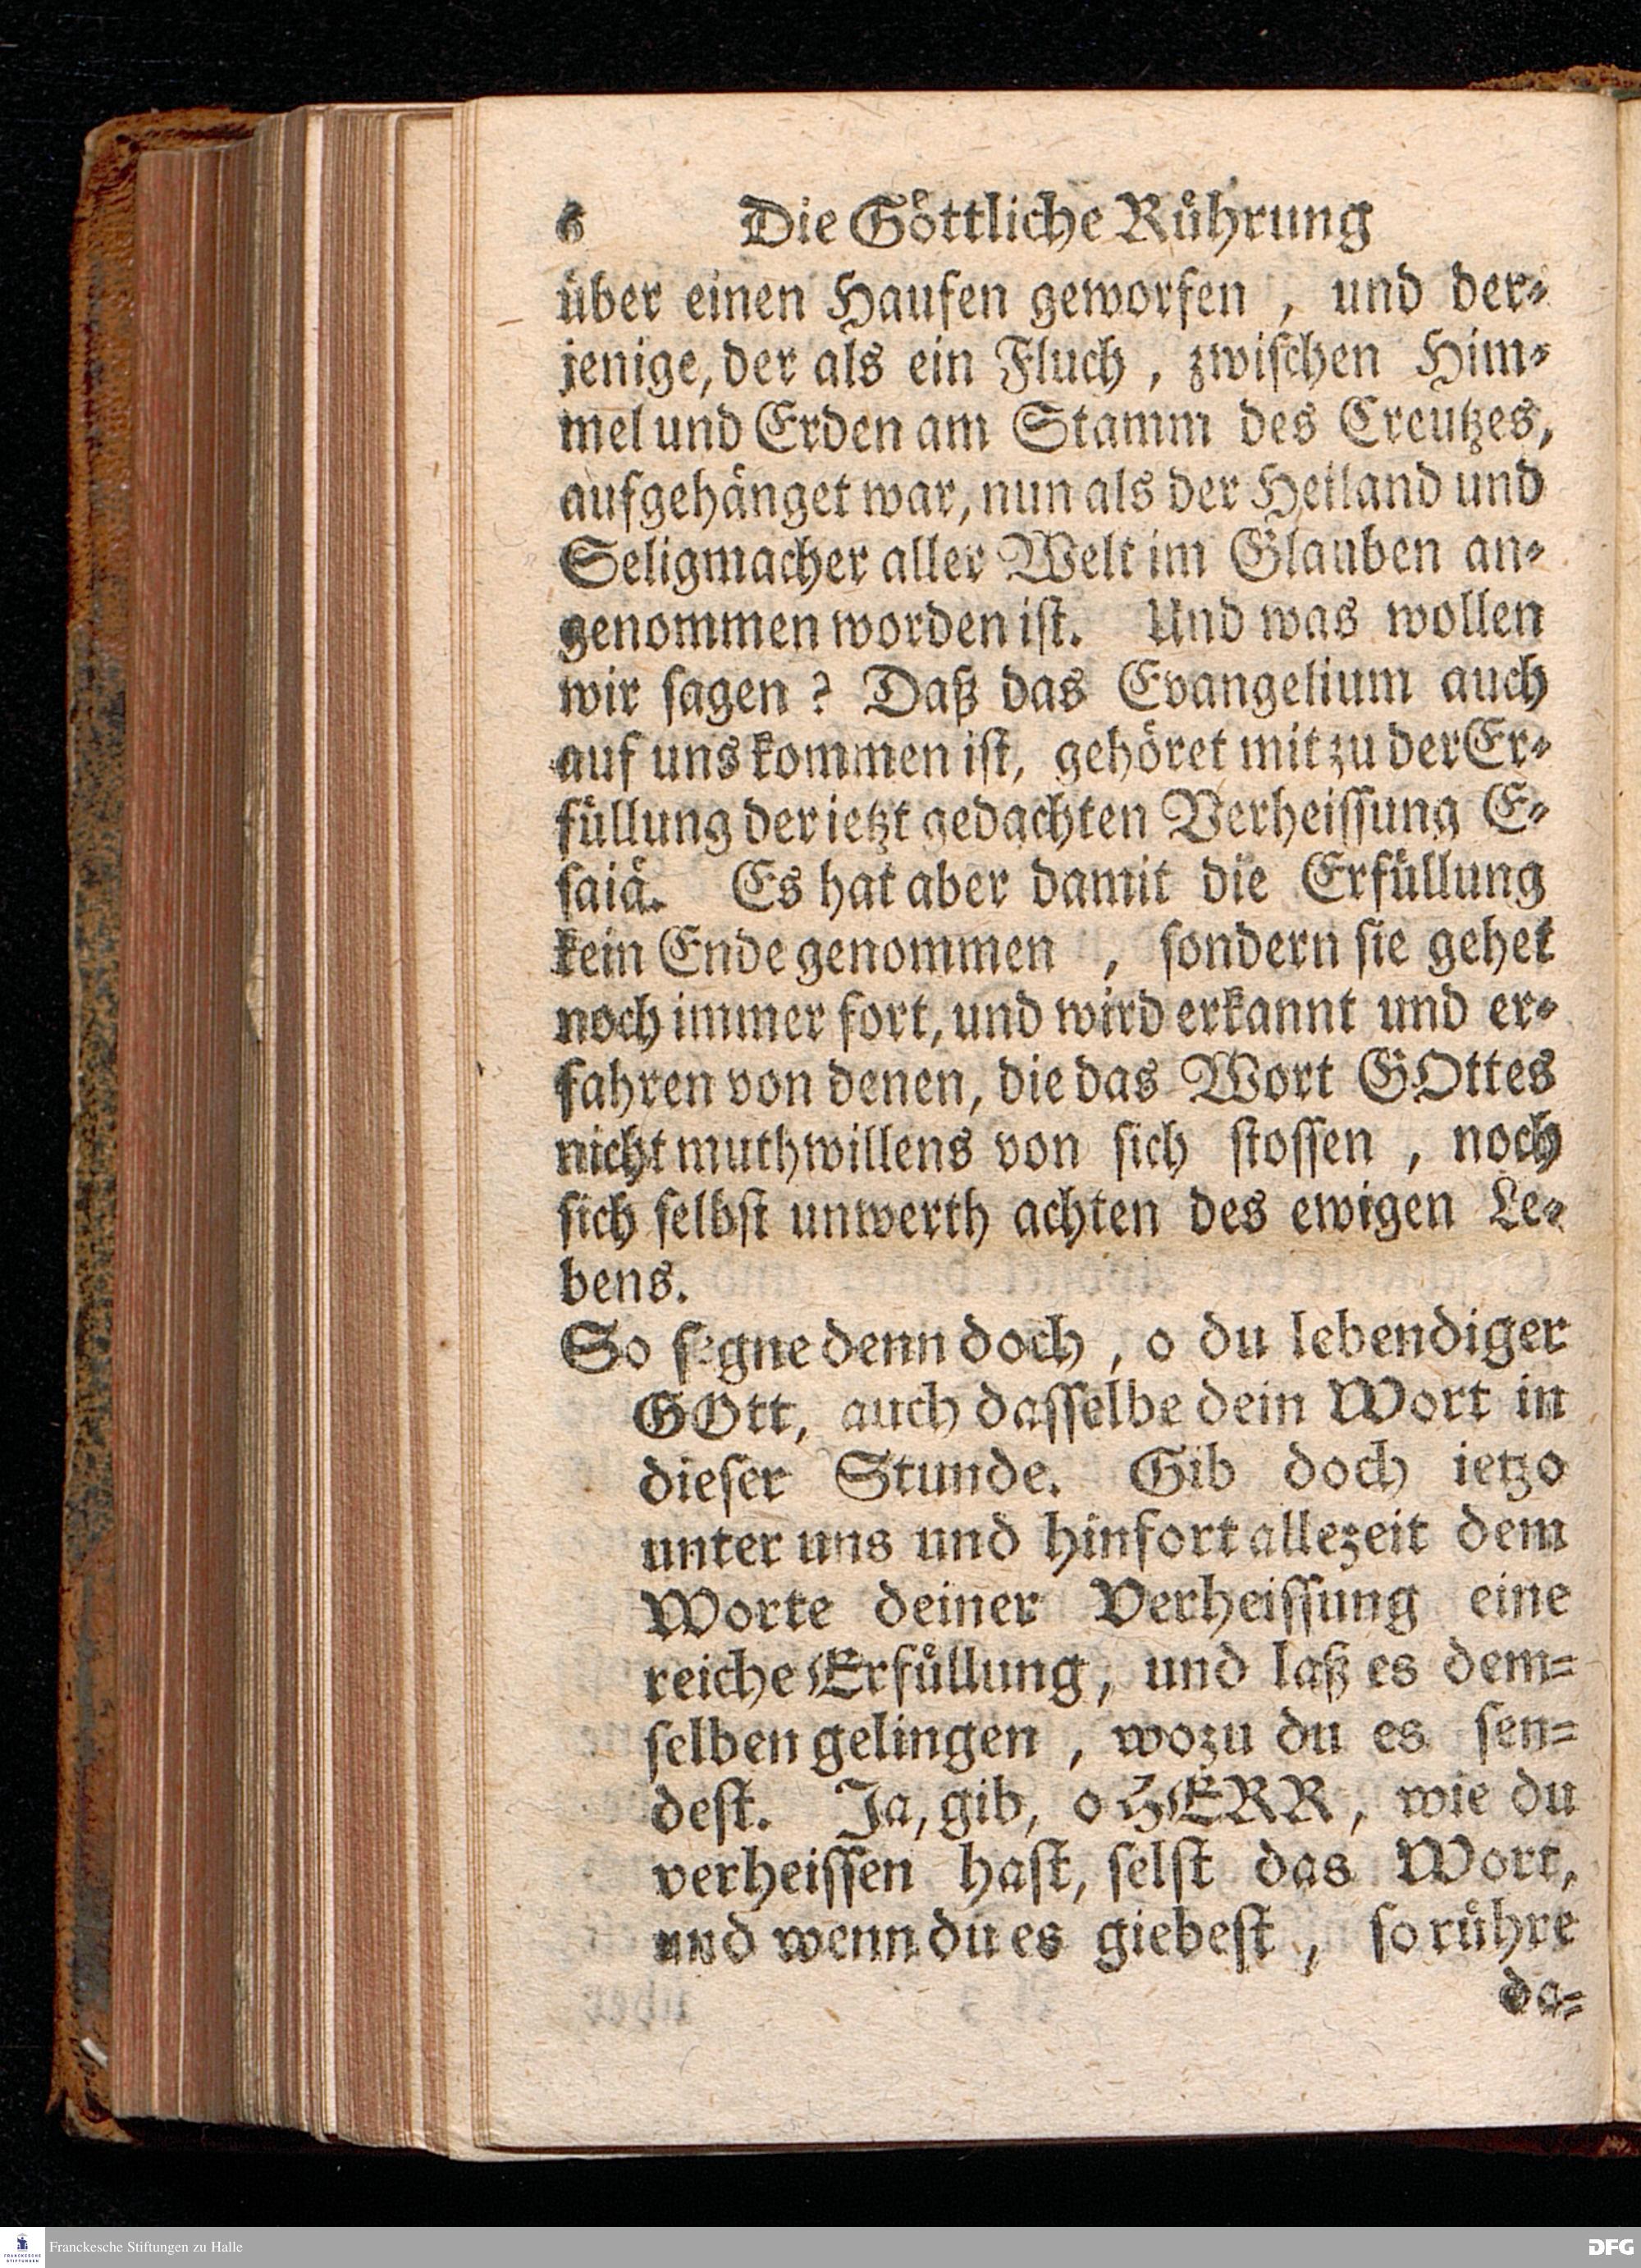 6 Die Göttliche Rührung
über einen Haufen geworfen, und der-
jenige, der als ein Fluch, zwischen Him-
mel und Erden am Stamm des Creutzes,
aufgehänget war, nun als der Heiland und
Seligmacher aller Welt im Glauben an-
genommen worden ist. Und was wollen
wir sagen? Daß das Evangelium auch
auf uns kommen ist, gehöret mit zu der Er-
füllung der ietzt gedachten Verheissung E-
saiä. Es hat aber damit die Erfüllung
kein Ende genommen, sondern sie gehet
noch immer fort, und wird erkannt und er-
fahren von denen, die das Wort GOttes
nicht muthwillens von sich stossen, noch
sich selbst unwerth achten des ewigen Le-
bens.
So segne denn doch, o du lebendiger
GOtt, auch dasselbe dein Wort in
dieser Stunde. Gib doch ietzo
unter uns und hinfort allezeit dem
Worte deiner Verheissung eine
reiche Erfüllung, und laß es dem-
selben gelingen, wozu du es sen-
dest. Ja, gib, o HERR, wie du
verheissen hast, selst das Wort,
und wenn du es giebest, so rühre
da-
FRANCKESCHE STIFTUNGEN
Franckesche Stiftungen zu Halle
DFG